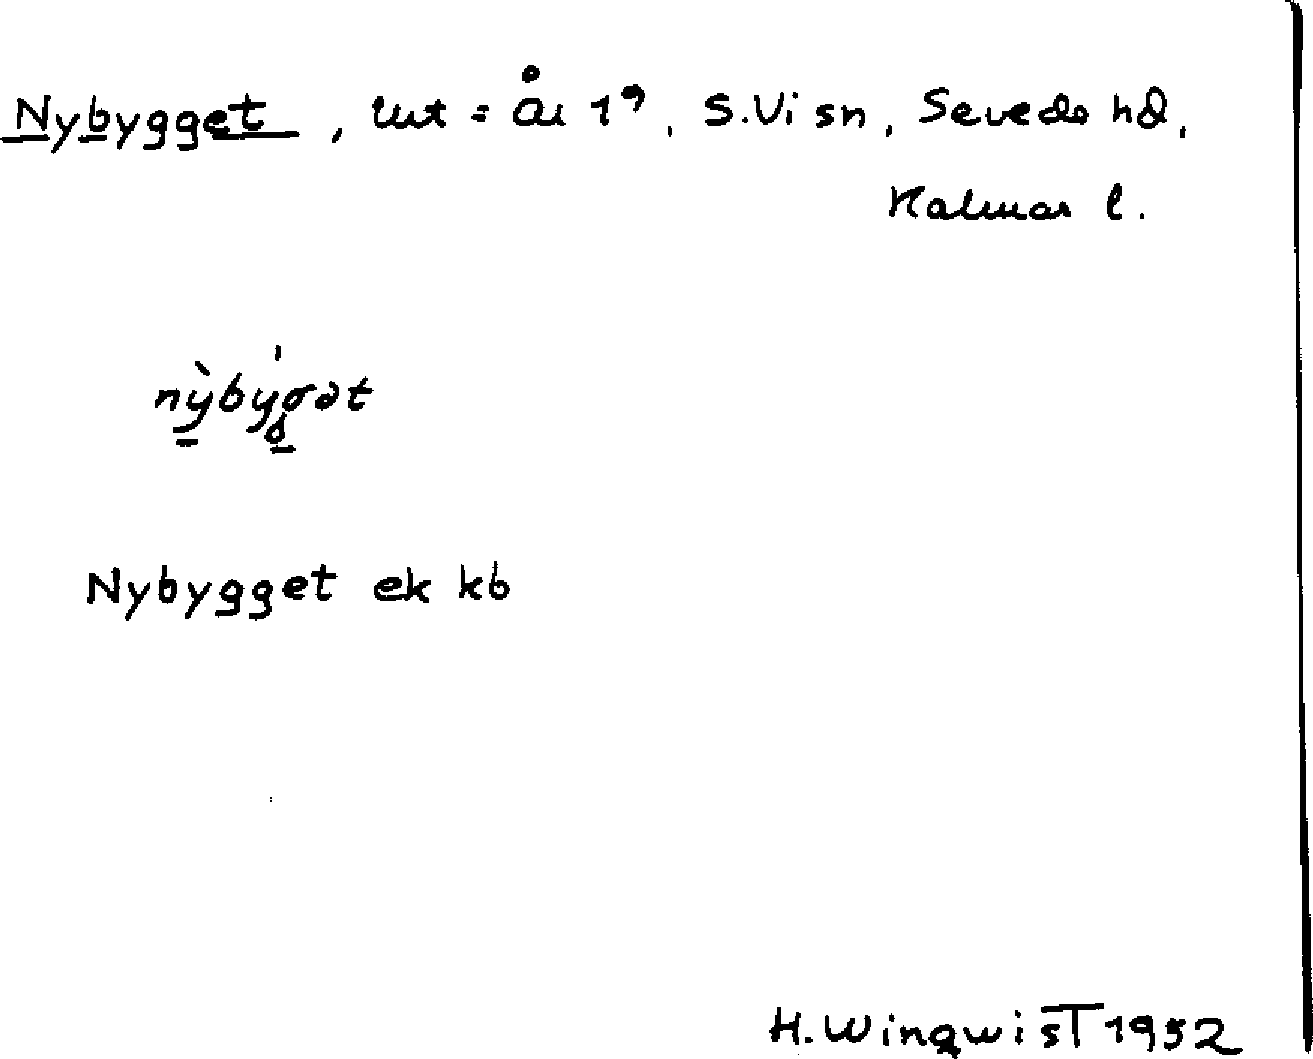 Nybygget, lut = Åu 1⁹, S. Vi sn, Sevede hd,
Kalmar l.
nỳbýgət
Nybygget ek kb
H. Winqwist 1952